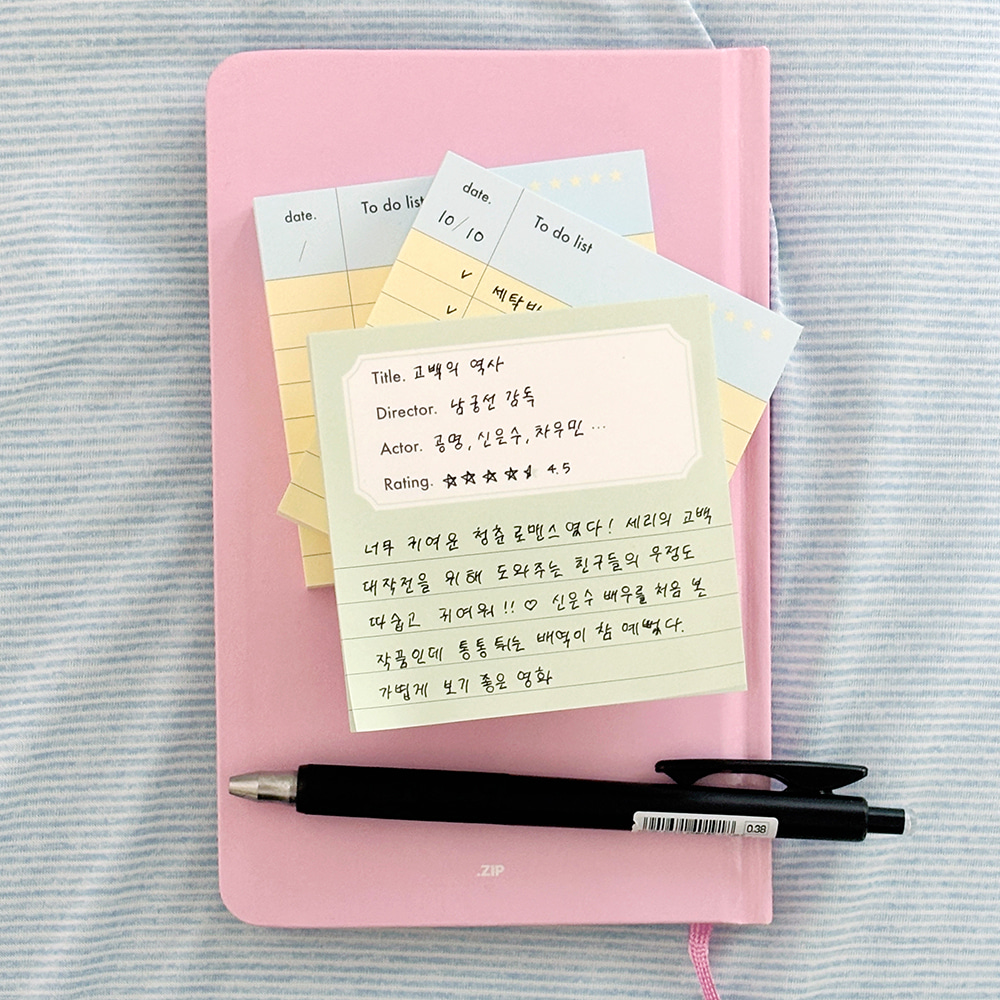 date.
To do list
/
date.
10/10
To do list
세탁
Title. 고백의 역사
Director. 남궁선 감독
Actor. 공명, 신은수, 차우민 ...
Rating. ★★★★☆ 4.5
너무 귀여운 청춘로맨스였다! 세리의 고백
대작전을 위해 도와주는 친구들의 우정도
따숩고 귀여워!! ♡ 신은수 배우를 처음 본
작품인데 통통 튀는 배역이 참 예뻤다.
가볍게 보기 좋은 영화
0.38
.ZIP